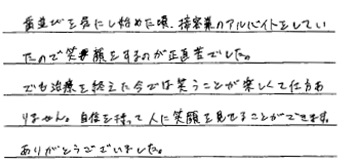 歯並びを気にし始めた頃、接客業のアルバイトをしてい
たので笑顔をするのが正直苦でした。
でも治療を終えた今では笑うことが楽しくて仕方あ
りません。自信を持って人に笑顔を見せることができます。
ありがとうございました。